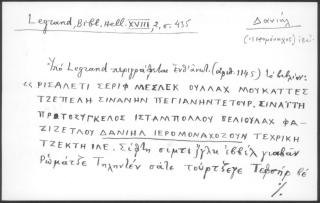 Legrand, Bibl. Hell. XVIII, 2, σ. 435
Δανιήλ
(ἱερομόναχος)
Ὑπὸ Legrand περιγράφεται (ἀριθ. 1145) τὸ βιβλίον:
« ΡΙΣΑΛΕΤΙ ΣΕΡΙΦ ΜΕΣΛΕΚ ΟΥΛΛΑΧ ΜΟΥΚΑΤΤΕΣ
ΤΖΕΠΕΛΗ ΣΙΝΑΝΗΝ ΠΕΓΙΑΝΗΝΤΕΤΟΥΡ. ΣΙΝΑΫΤΗ
ΠΡΩΤΟΣΥΓΚΕΛΟΣ ΙΣΤΑΜΠΟΛΛΟΥ ΒΕΛΙΟΥΛΑΧ ΦΑ-
ΖΙΖΕΤΛΟΥ ΔΑΝΙΗΛ ΙΕΡΟΜΟΝΑΧΟΖΟΥΝ ΤΕΧΡΙΚΗ
ΤΖΕΚΤΗ ΙΛΕ. Σίφτη σιμτι γιαβὰν
Ῥωμάτζε Τηληντὲν σάτε τούρτζεγε Τεφσὴρ βὲ
·/.